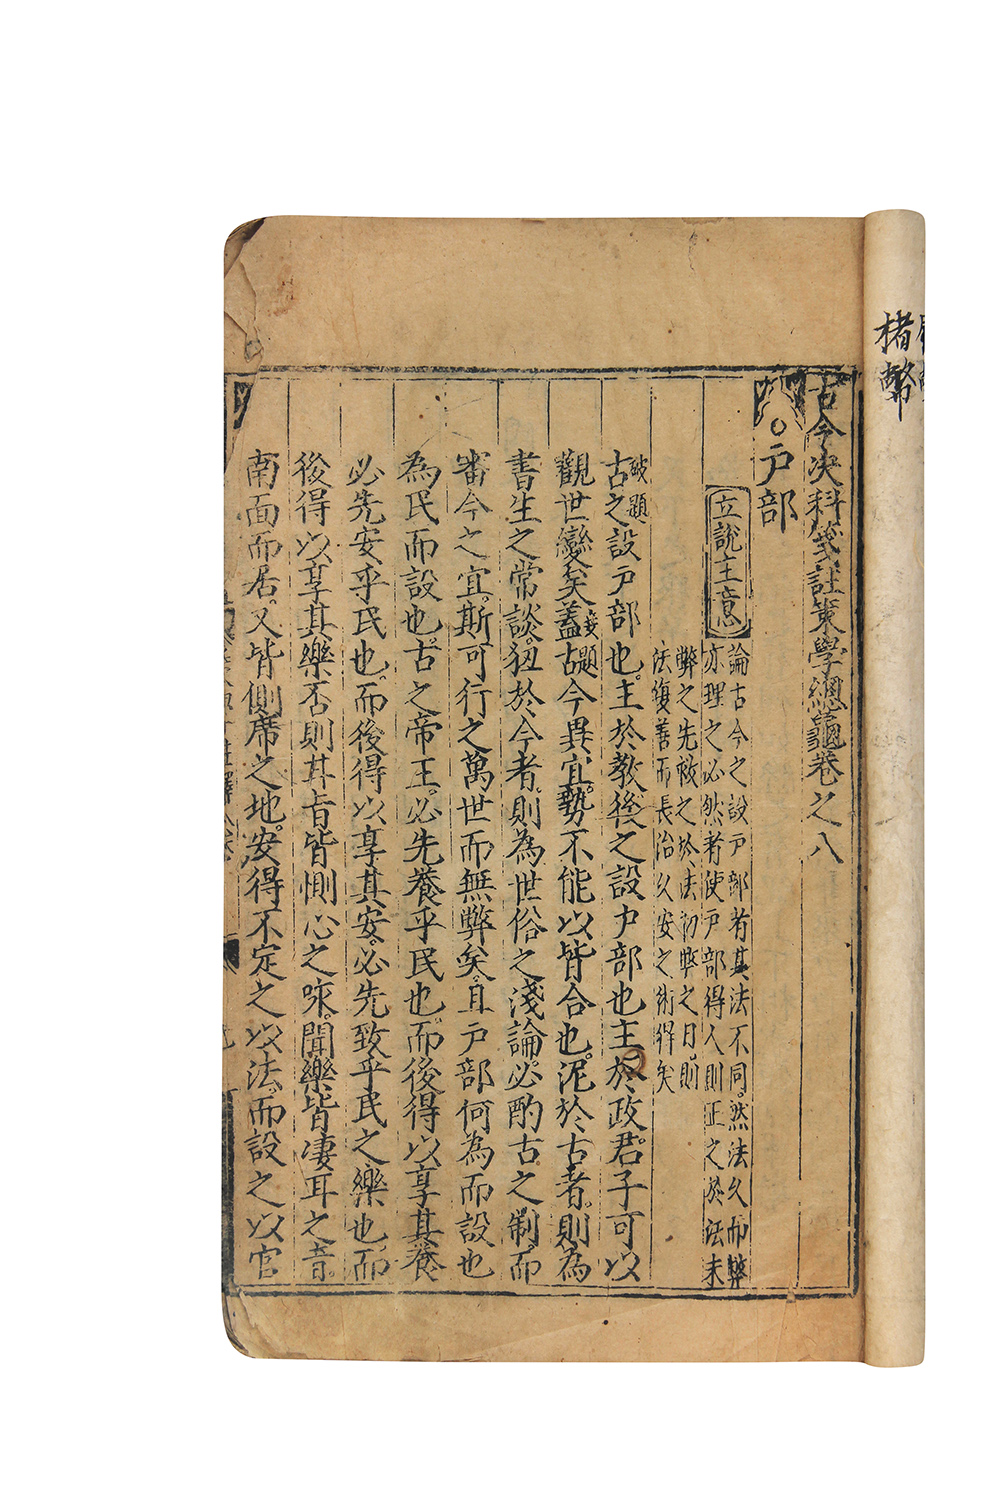 楮幣
古今决科箋註策學總龜卷之八
○户部
立說主意
論古今之設户部者其法不同然法久而弊
亦理之必然者使户部得人則正之於法未
弊之先救之於法初弊之日則
法復善而長治久安之術得矣
破題
古之設户部也主於教後之設户部也主於政君子可以
觀世變矣蓋接題古今異宜勢不能以皆合也泥於古者則為
書生之常談狃於今者則為世俗之淺論必酌古之制而
審今之宜斯可行之萬世而無弊矣且户部何為而設也
為民而設也古之帝王必先養乎民也而後得以享其養
必先安乎民也而後得以享其安必先致乎民之樂也而
後得以享其樂否則其旨皆惻心之味聞樂皆凄耳之音
南面而居又皆側席之地安得不定之以法而設之以官